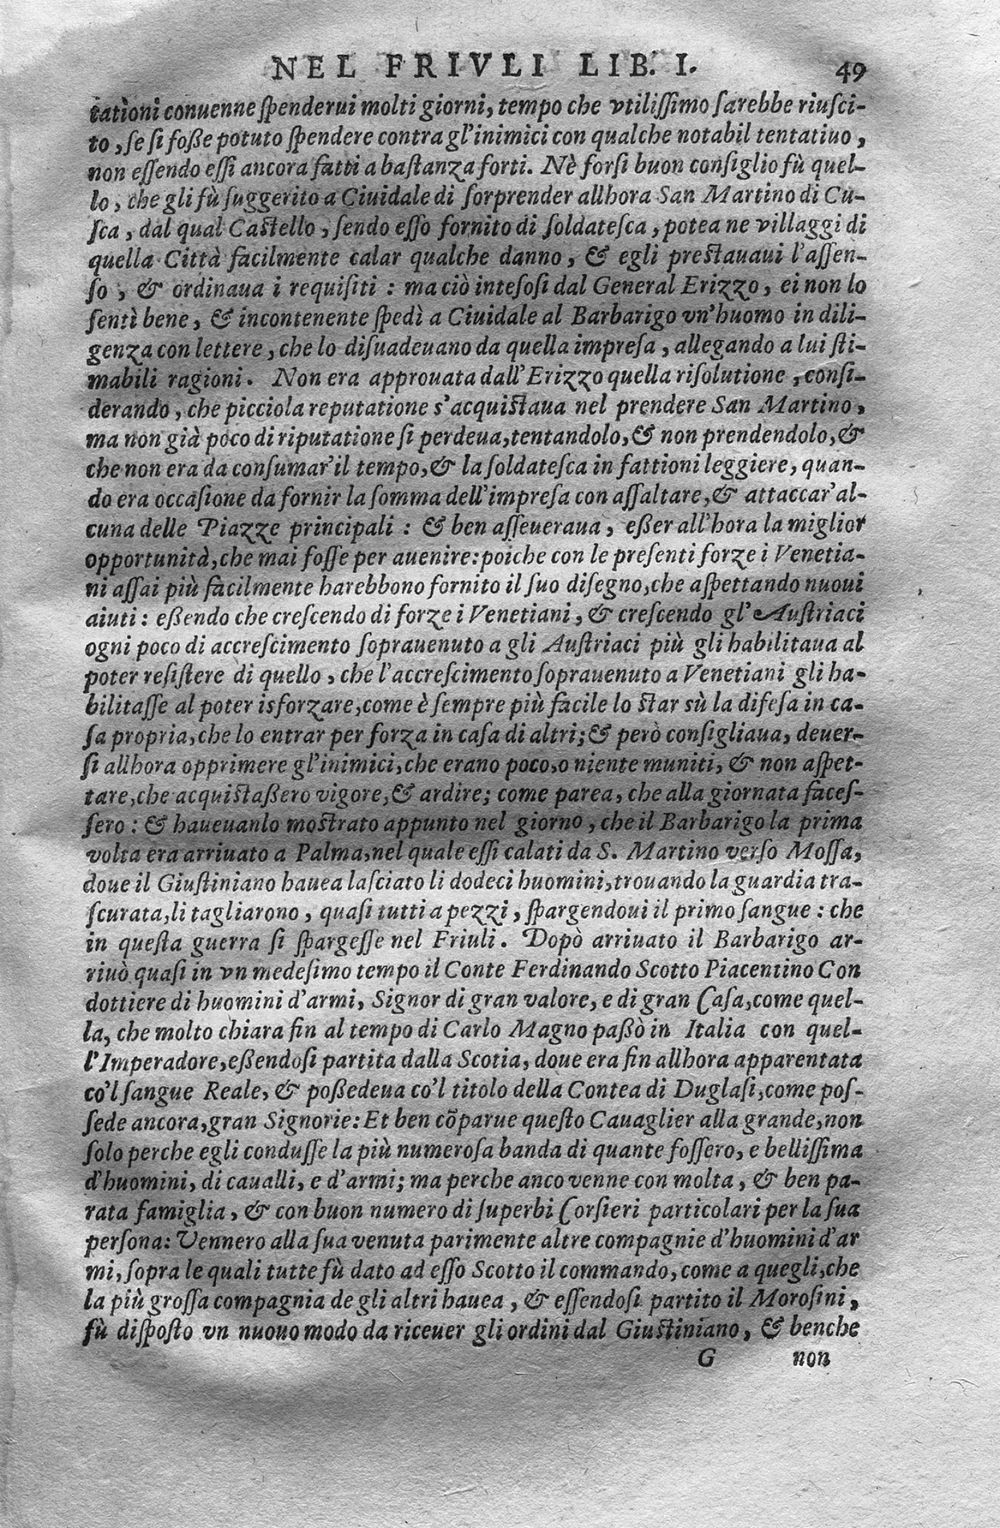 NEL FRIVLI LIB. I. 49
tationi conuenne ſpenderui molti giorni, tempo che vtiliſſimo ſarebbe riuſci-
to, ſe ſi foße potuto ſpendere contra gl'inimici con qualche notabil tentatiuo,
non eſſendo eſſi ancora fatti a baſtanza forti. Nè forſi buon conſiglio fù quel-
lo, che gli fù ſuggerito a Ciuidale di ſorprender allhora San Martino di Cu-
ſca, dal qual Caſtello, ſendo eſſo fornito di ſoldateſca, potea ne villaggi di
quella Città facilmente calar qualche danno, & egli preſtauaui l'aſſen-
ſo, & ordinaua i requiſiti: ma ciò inteſoſi dal General Erizzo, ei non lo
ſentì bene, & incontenente ſpedì a Ciuidale al Barbarigo vn'huomo in dili-
genza con lettere, che lo diſuadeuano da quella impreſa, allegando a lui ſti-
mabili ragioni. Non era approuata dall'Erizzo quella riſolutione, conſi-
derando, che picciola reputatione s'acquiſtaua nel prendere San Martino,
ma non già poco di riputatione ſi perdeua, tentandolo, & non prendendolo, &
che non era da conſumar'il tempo, & la ſoldateſca in fattioni leggiere, quan-
do era occaſione da fornir la ſomma dell'impreſa con aſſaltare, & attaccar'al-
cuna delle Piazze principali: & ben aſſeueraua, eßer all'hora la miglior
opportunità, che mai foſſe per auenire: poiche con le preſenti forze i Venetia-
ni aſſai più facilmente harebbono fornito il ſuo diſegno, che aſpettando nuoui
aiuti: eßendo che creſcendo di forze i Venetiani, & creſcendo gl'Auſtriaci
ogni poco di accreſcimento ſoprauenuto a gli Auſtriaci più gli habilitaua al
poter reſiſtere di quello, che l'accreſcimento ſoprauenuto a Venetiani gli ha-
bilitaſſe al poter isforzare, come è ſempre più facile lo ſtar sù la difeſa in ca-
ſa propria, che lo entrar per forza in caſa di altri; & però conſigliaua, deuer-
ſi allhora opprimere gl'inimici, che erano poco, o niente muniti, & non aſpet-
tare, che acquiſtaßero vigore, & ardire; come parea, che alla giornata faceſ-
ſero: & haueuanlo moſtrato appunto nel giorno, che il Barbarigo la prima
volta era arriuato a Palma, nel quale eſſi calati da S. Martino verſo Moſſa,
doue il Giuſtiniano hauea laſciato li dodeci huomini, trouando la guardia tra-
ſcurata, li tagliarono, quaſi tutti a pezzi, ſpargendoui il primo ſangue: che
in queſta guerra ſi ſpargeſſe nel Friuli. Dopò arriuato il Barbarigo ar-
riuò quaſi in vn medeſimo tempo il Conte Ferdinando Scotto Piacentino Con
dottiere di huomini d'armi, Signor di gran valore, e di gran Caſa, come quel-
la, che molto chiara fin al tempo di Carlo Magno paßò in Italia con quel-
l'Imperadore, eßendoſi partita dalla Scotia, doue era fin allhora apparentata
co'l ſangue Reale, & poßedeua co'l titolo della Contea di Duglaſi, come poſ-
ſede ancora, gran Signorie: Et ben cõparue queſto Cauaglier alla grande, non
ſolo perche egli conduſſe la più numeroſa banda di quante foſſero, e belliſſima
d'huomini, di caualli, e d'armi; ma perche anco venne con molta, & ben pa-
rata famiglia, & con buon numero di ſuperbi Corſieri particolari per la ſua
perſona: Vennero alla ſua venuta parimente altre compagnie d'huomini d'ar
mi, ſopra le quali tutte fù dato ad eſſo Scotto il commando, come a quegli, che
la più groſſa compagnia de gli altri hauea, & eſſendoſi partito il Moroſini,
fù diſpoſto vn nuouo modo da riceuer gli ordini dal Giuſtiniano, & benche
G non